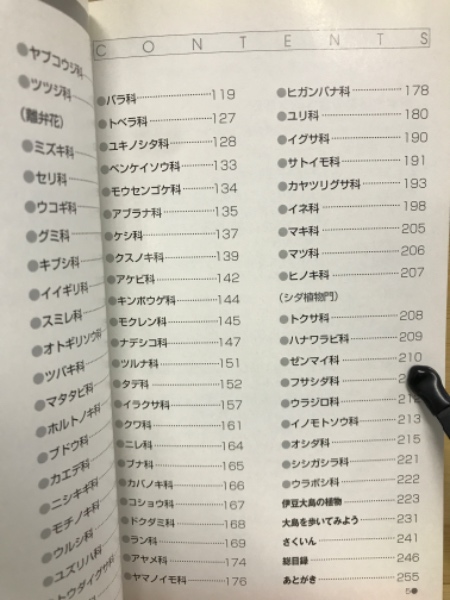 ●ヤブコウジ科
●ツツジ科
(離弁花)
●ミズキ科
●セリ科
●ウコギ科
●グミ科
●キブシ科
●イイギリ科
●スミレ科
●オトギリソウ科
●ツバキ科
●マタタビ科
●ホルトノキ科
●ブドウ科
●カエデ科
●ニシキギ科
●モチノキ科
●ウルシ科
●ユズリハ科
●トウダイグサ科
CONTENTS
●バラ科 119
●トベラ科 127
●ユキノシタ科 128
●ベンケイソウ科 133
●モウセンゴケ科 134
●アブラナ科 135
●ケシ科 137
●クスノキ科 139
●アケビ科 142
●キンポウゲ科 144
●モクレン科 145
●ナデシコ科 147
●ツルナ科 151
●タデ科 152
●イラクサ科 157
●クワ科 161
●ニレ科 164
●ブナ科 165
●カバノキ科 166
●コショウ科 167
●ドクダミ科 168
●ラン科 169
●アヤメ科 174
●ヤマノイモ科 176
●ヒガンバナ科 178
●ユリ科 180
●イグサ科 190
●サトイモ科 191
●カヤツリグサ科 193
●イネ科 198
●マキ科 205
●マツ科 206
●ヒノキ科 207
(シダ植物門)
●トクサ科 208
●ハナワラビ科 209
●ゼンマイ科 210
●フサシダ科
●ウラジロ科 212
●イノモトソウ科 213
●オシダ科 215
●シシガシラ科 221
●ウラボシ科 222
伊豆大島の植物 223
大島を歩いてみよう 231
さくいん 241
総目録 246
あとがき 255
5